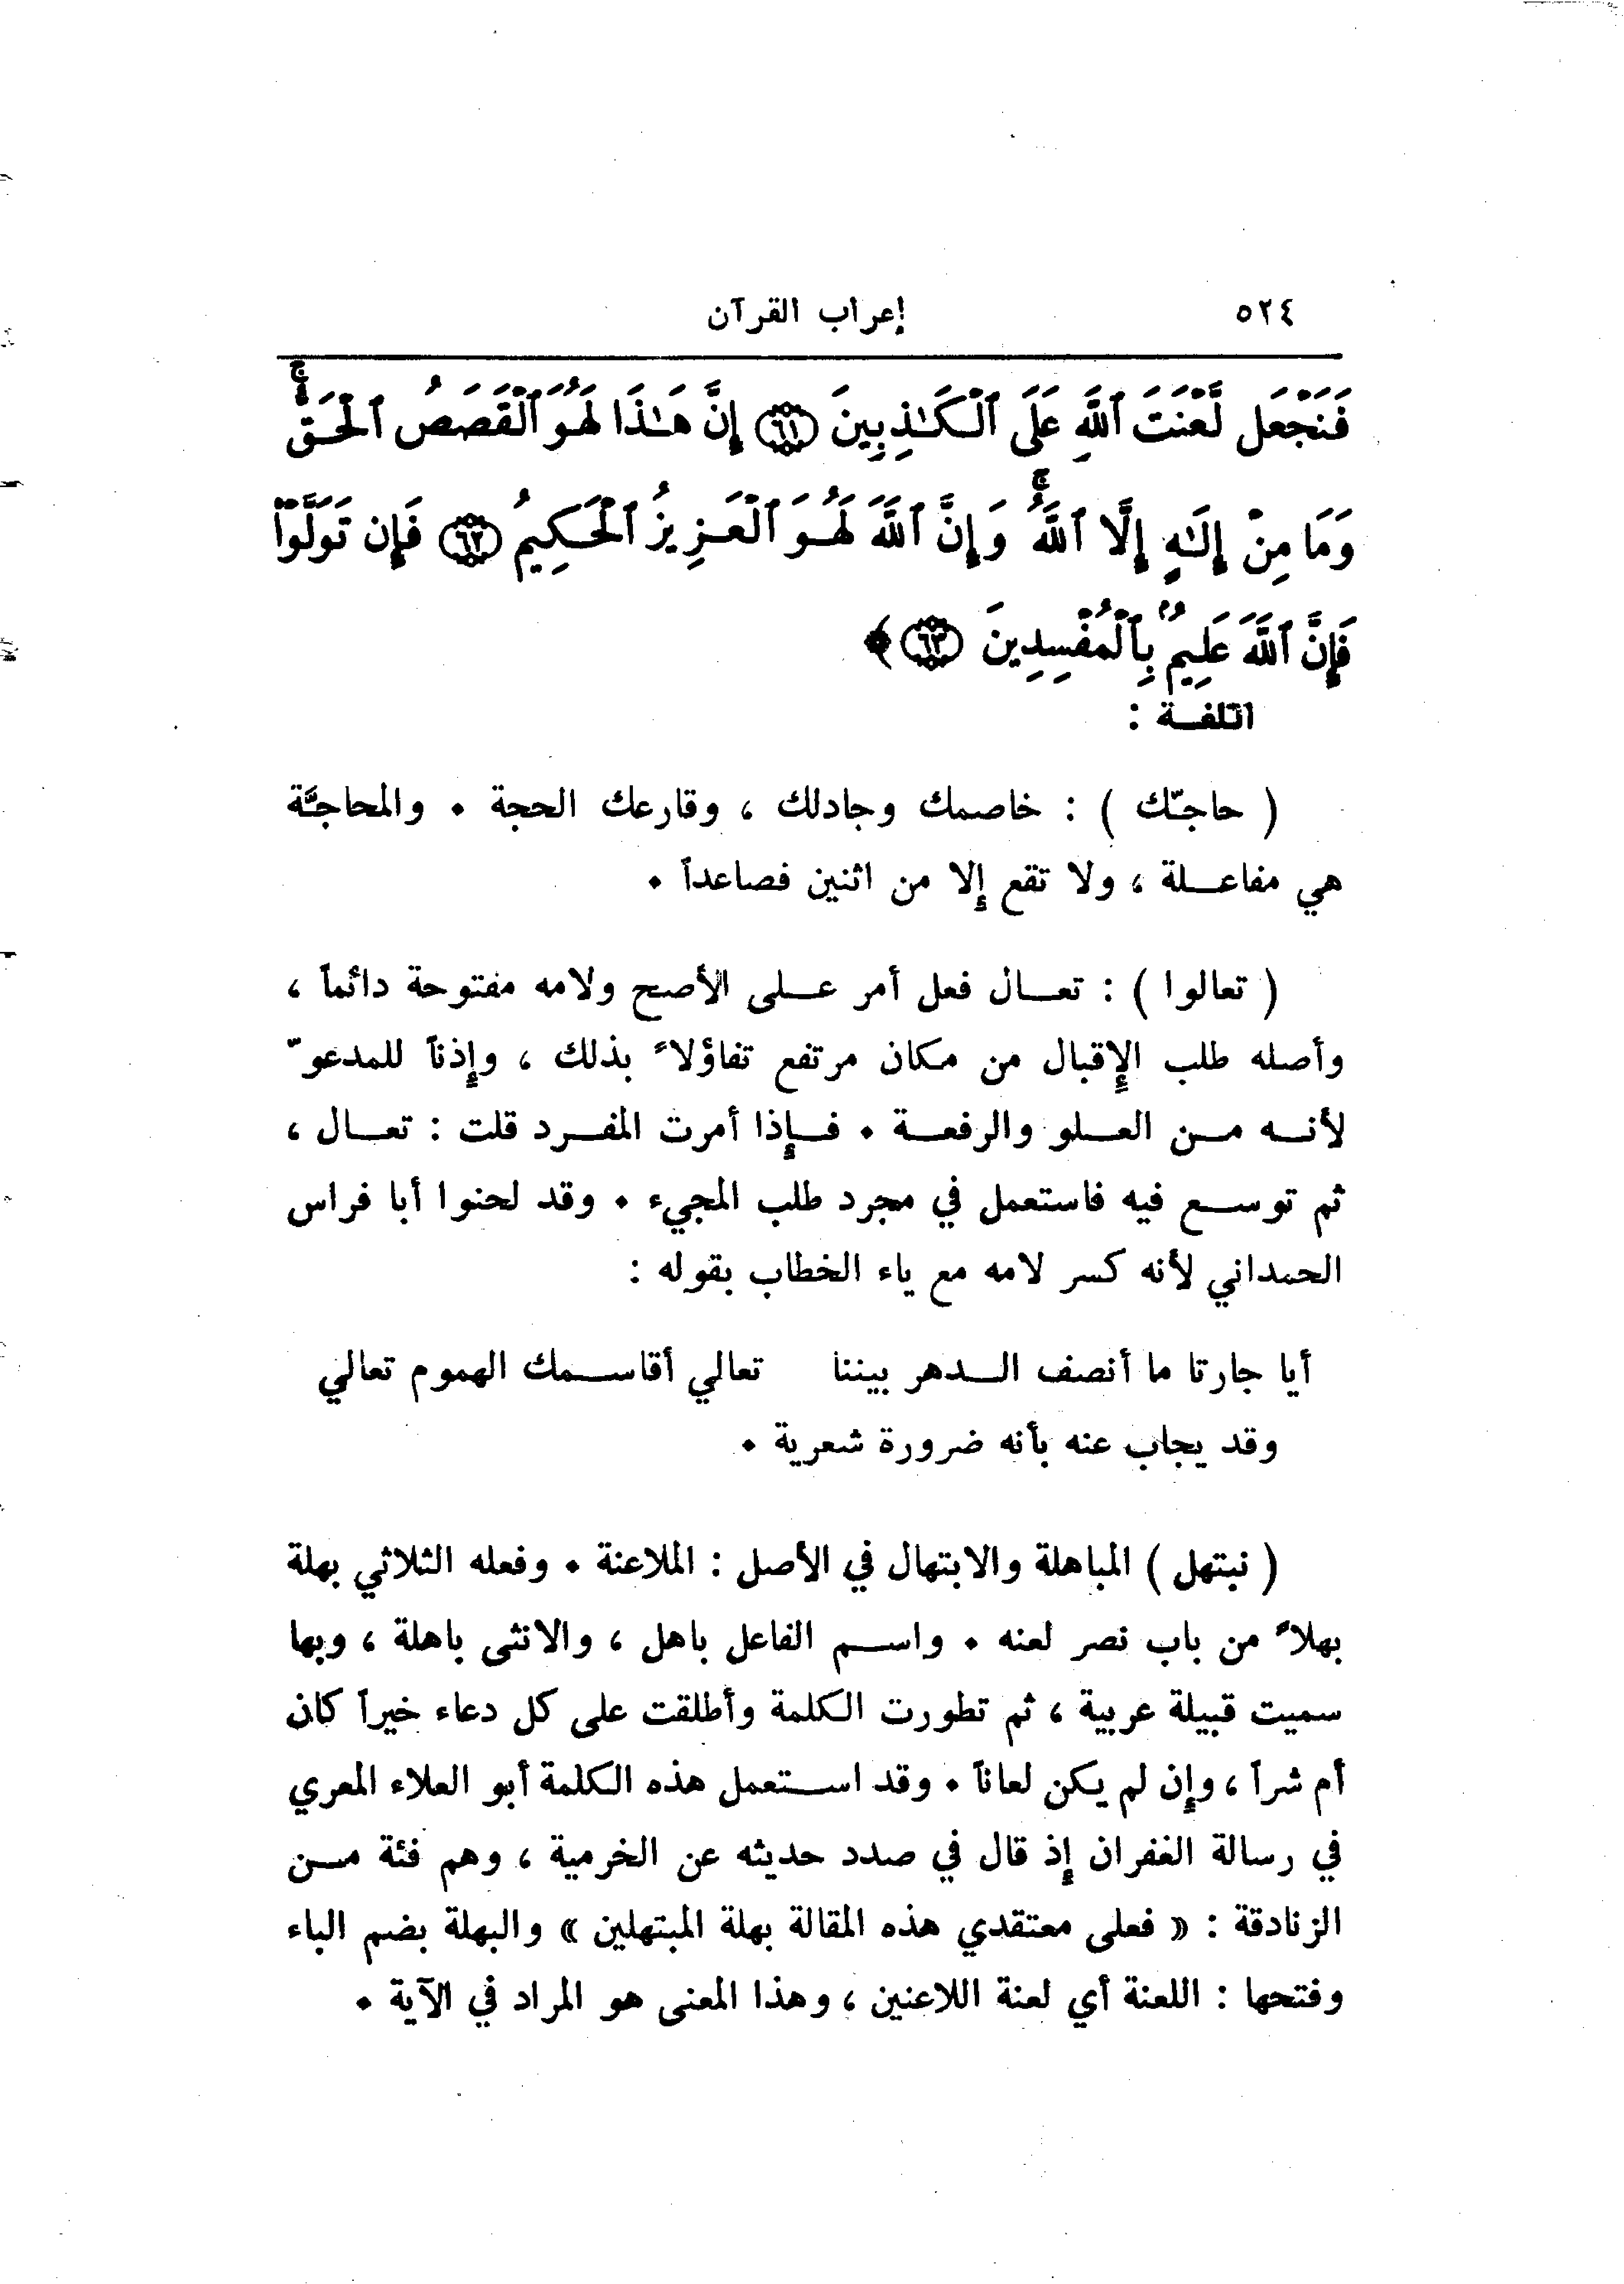 ٥٢٤ إعراب القرآن
فَنَجْعَل لَّعْنَتَ ٱللَّهِ عَلَى ٱلْكَـٰذِبِينَ ﴿٦١﴾ إِنَّ هَـٰذَا لَهُوَ ٱلْقَصَصُ ٱلْحَقُّ ۚ
وَمَا مِنْ إِلَـٰهٍ إِلَّا ٱللَّهُ ۚ وَإِنَّ ٱللَّهَ لَهُوَ ٱلْعَزِيزُ ٱلْحَكِيمُ ﴿٦٢﴾ فَإِن تَوَلَّوْا۟
فَإِنَّ ٱللَّهَ عَلِيمٌۢ بِٱلْمُفْسِدِينَ ﴿٦٣﴾ ﴾
اللغة :
( حاجّك ) : خاصمك وجادلك ، وقارعك الحجة . والمحاجَّة
هي مفاعلة ، ولا تقع إلا من اثنين فصاعداً .
( تعالوا ) : تعال فعل أمر على الأصح ولامه مفتوحة دائماً ،
وأصله طلب الإقبال من مكان مرتفع تفاؤلاً بذلك ، وإذناً للمدعوّ
لأنه من العلو والرفعة . فإذا أمرت المفرد قلت : تعال ،
ثم توسع فيه فاستعمل في مجرد طلب المجيء . وقد لحنوا أبا فراس
الحمداني لأنه كسر لامه مع ياء الخطاب بقوله :
أيا جارتا ما أنصف الدهر بيننا تعالي أقاسمك الهموم تعالي
وقد يجاب عنه بأنه ضرورة شعرية .
( نبتهل ) المباهلة والابتهال في الأصل : الملاعنة . وفعله الثلاثي بهلة
بهلاً من باب نصر لعنه . واسم الفاعل باهل ، والانثى باهلة ، وبها
سميت قبيلة عربية ، ثم تطورت الكلمة وأطلقت على كل دعاء خيراً كان
أم شراً ، وإن لم يكن لعاناً . وقد استعمل هذه الكلمة أبو العلاء المعري
في رسالة الغفران إذ قال في صدد حديثه عن الخرمية ، وهم فئة من
الزنادقة : « فعلى معتقدي هذه المقالة بهلة المبتهلين » والبهلة بضم الباء
وفتحها : اللعنة أي لعنة اللاعنين ، وهذا المعنى هو المراد في الآية .